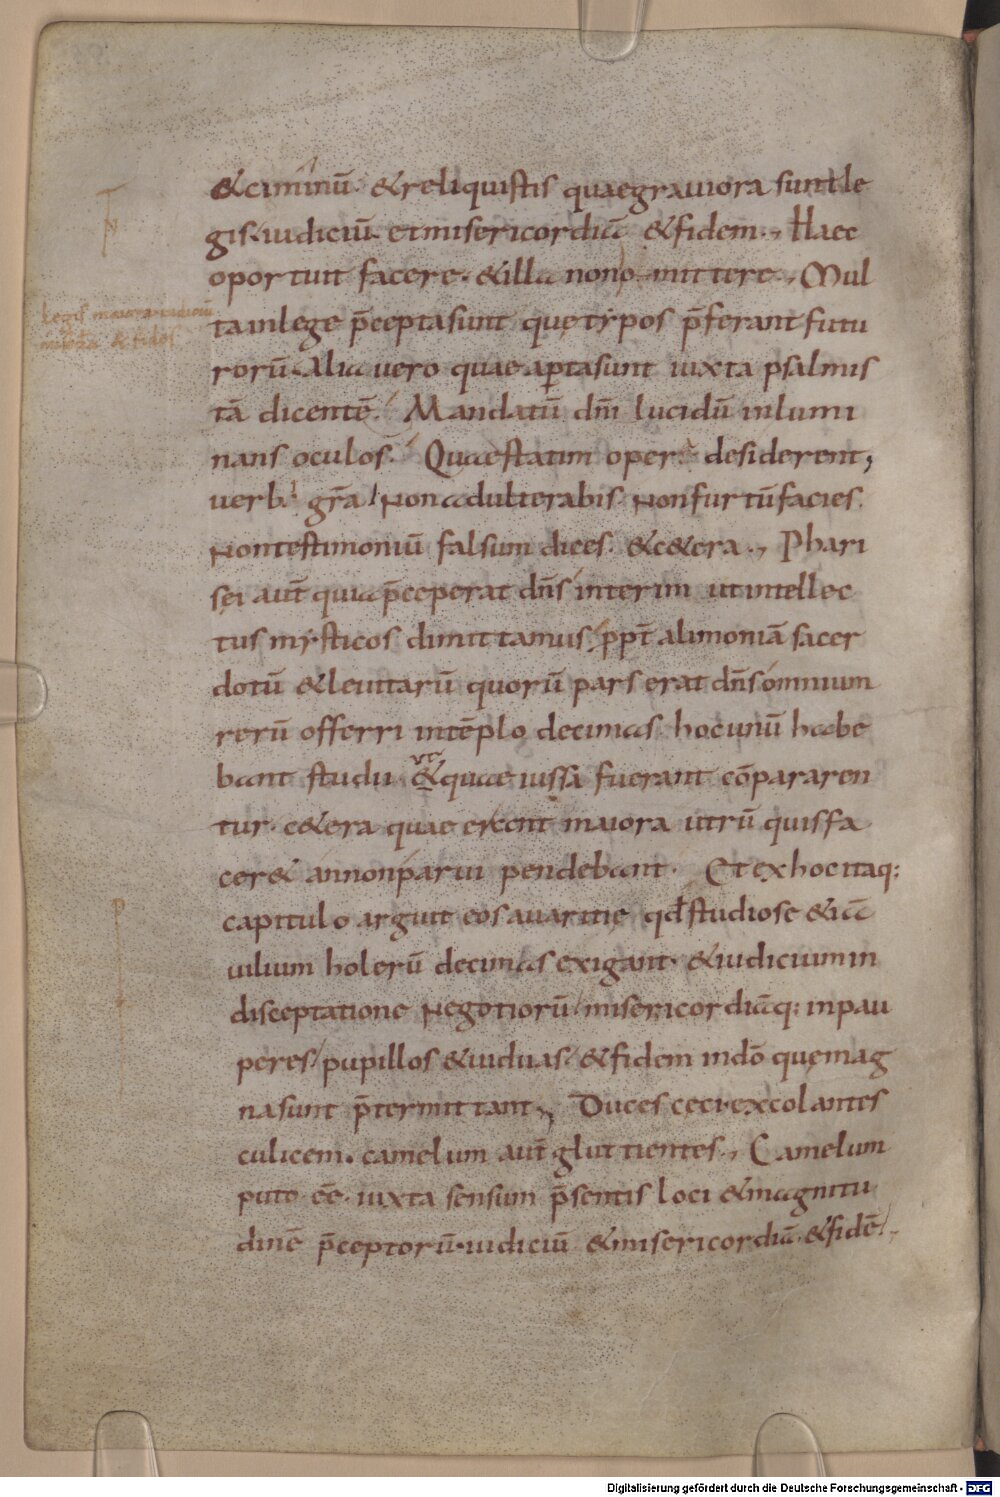 &ciminū. &reliquistis quaegrauiora suntle
gis. iudiciū. etmisericordiā &fidem., Haec
oportuit facere. &illa nonomittere., Mul
legis maiora iudiciū
tainlege p̄ceptasunt quę typos p̄ferant futu
& fides
rorū. Alia uero quae aptasunt iuxta psalmis
tā dicentē. Mandatū dn̄i lucidū inlumi
nans oculos. Quaestatim opera desiderent,
uerbi gr̄a Nonadulterabis. Nonfurtūfacies.
Nontestimoniū falsum dices. &c&era., Phari
sęi aut̄ quiap̄ceperat dn̄s interim utintellec
tus mysticos dimittamus, ppt̄ alimoniā sacer
dotū &leuitarū quorū pars erat dn̄s omnium
rerū offerri intēplo decimas hocunū habe
ut
bant studii &quae iussa fuerant cōpararen
tur. c&era quae erant maiora utrū quisfa
cer& annonparui pendebant. Etexhocitaq:
capitulo arguit eosauaritię qđstudiose &iā
uilium holerū decimas exigant. &iudiciumin
disceptatione Negotiorū misericordiāq: inpau
peres pupillos &uiduas. &fidem indō quęmag
nasunt p̄termittant., Duces cęciexcolantes
culicem. camelum aut̄ gluttientes., Camelum
puto eē. iuxta sensum p̄sentis loci &magnitu
dinē p̄ceptorū. iudiciū &misericordiā. &fidē.,
Digitalisierung gefördert durch die Deutsche Forschungsgemeinschaft - DFG